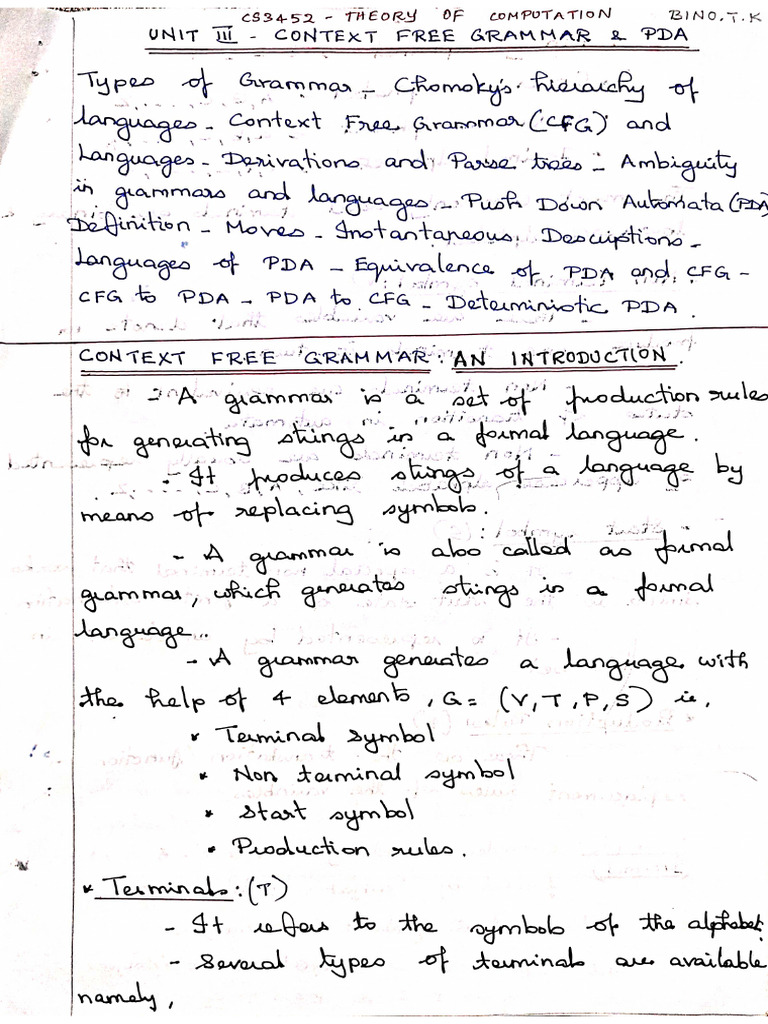 CS3452 - THEORY OF COMPUTATION BINO.T.K
UNIT III - CONTEXT FREE GRAMMAR & PDA
Types of Grammar - Chomsky's hierarchy of
languages - Context Free Grammar (CFG) and
Languages - Derivations and Parse trees - Ambiguity
in grammars and languages - Push Down Automata (PDA)
Definition - Moves - Instantaneous Descriptions -
Languages of PDA - Equivalence of PDA and CFG -
CFG to PDA - PDA to CFG - Deterministic PDA.
CONTEXT FREE GRAMMAR: AN INTRODUCTION.
- A grammar is a set of production rules
for generating strings in a formal language.
- It produces strings of a language by
means of replacing symbols.
- A grammar is also called as formal
grammar, which generates strings in a formal
language.
- A grammar generates a language with
the help of 4 elements, G = (V, T, P, S) ie,
* Terminal symbol
* Non terminal symbol
* Start symbol
* Production rules.
* Terminals: (T)
- It refers to the symbols of the alphabet.
- Several types of terminals are available
namely,